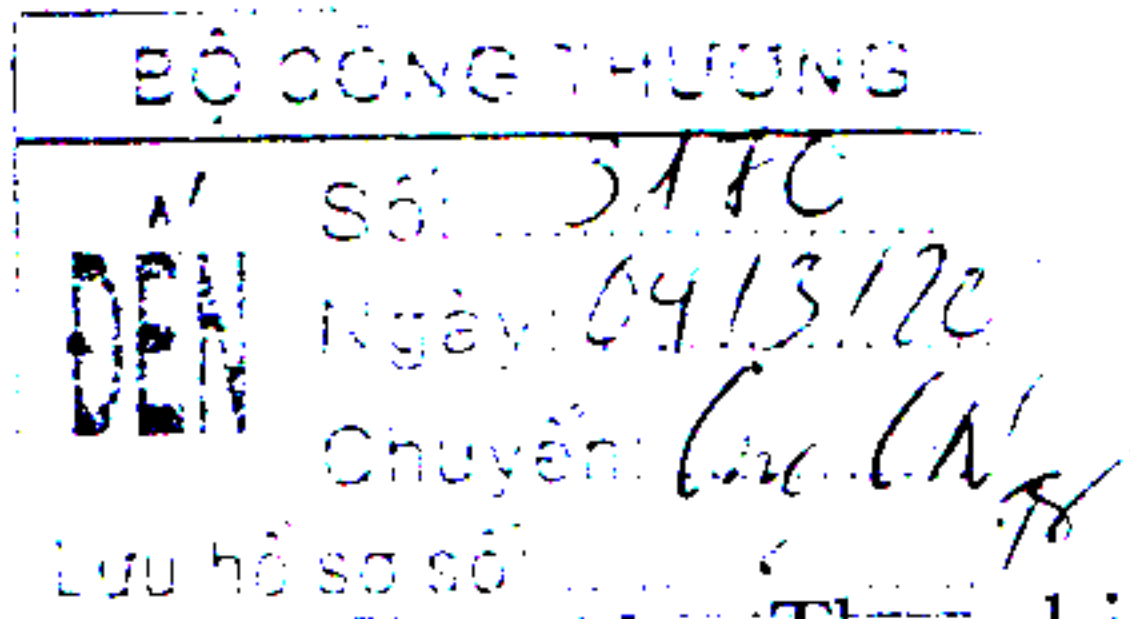 BỘ CÔNG THƯƠNG
ĐẾN
Số:
Ngày: 04/3/20
Chuyển: Cục CN
Lưu hồ sơ số